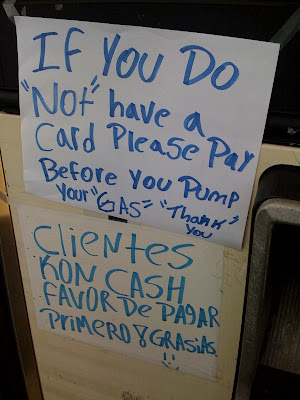 IF YOU DO
"NOT" have a
Card Please Pay
Before You Pump
Your "GAS" "Thank"
You
Clientes
KON CASH
FAVOR De PAGAR
PRIMERO! GRASIAS